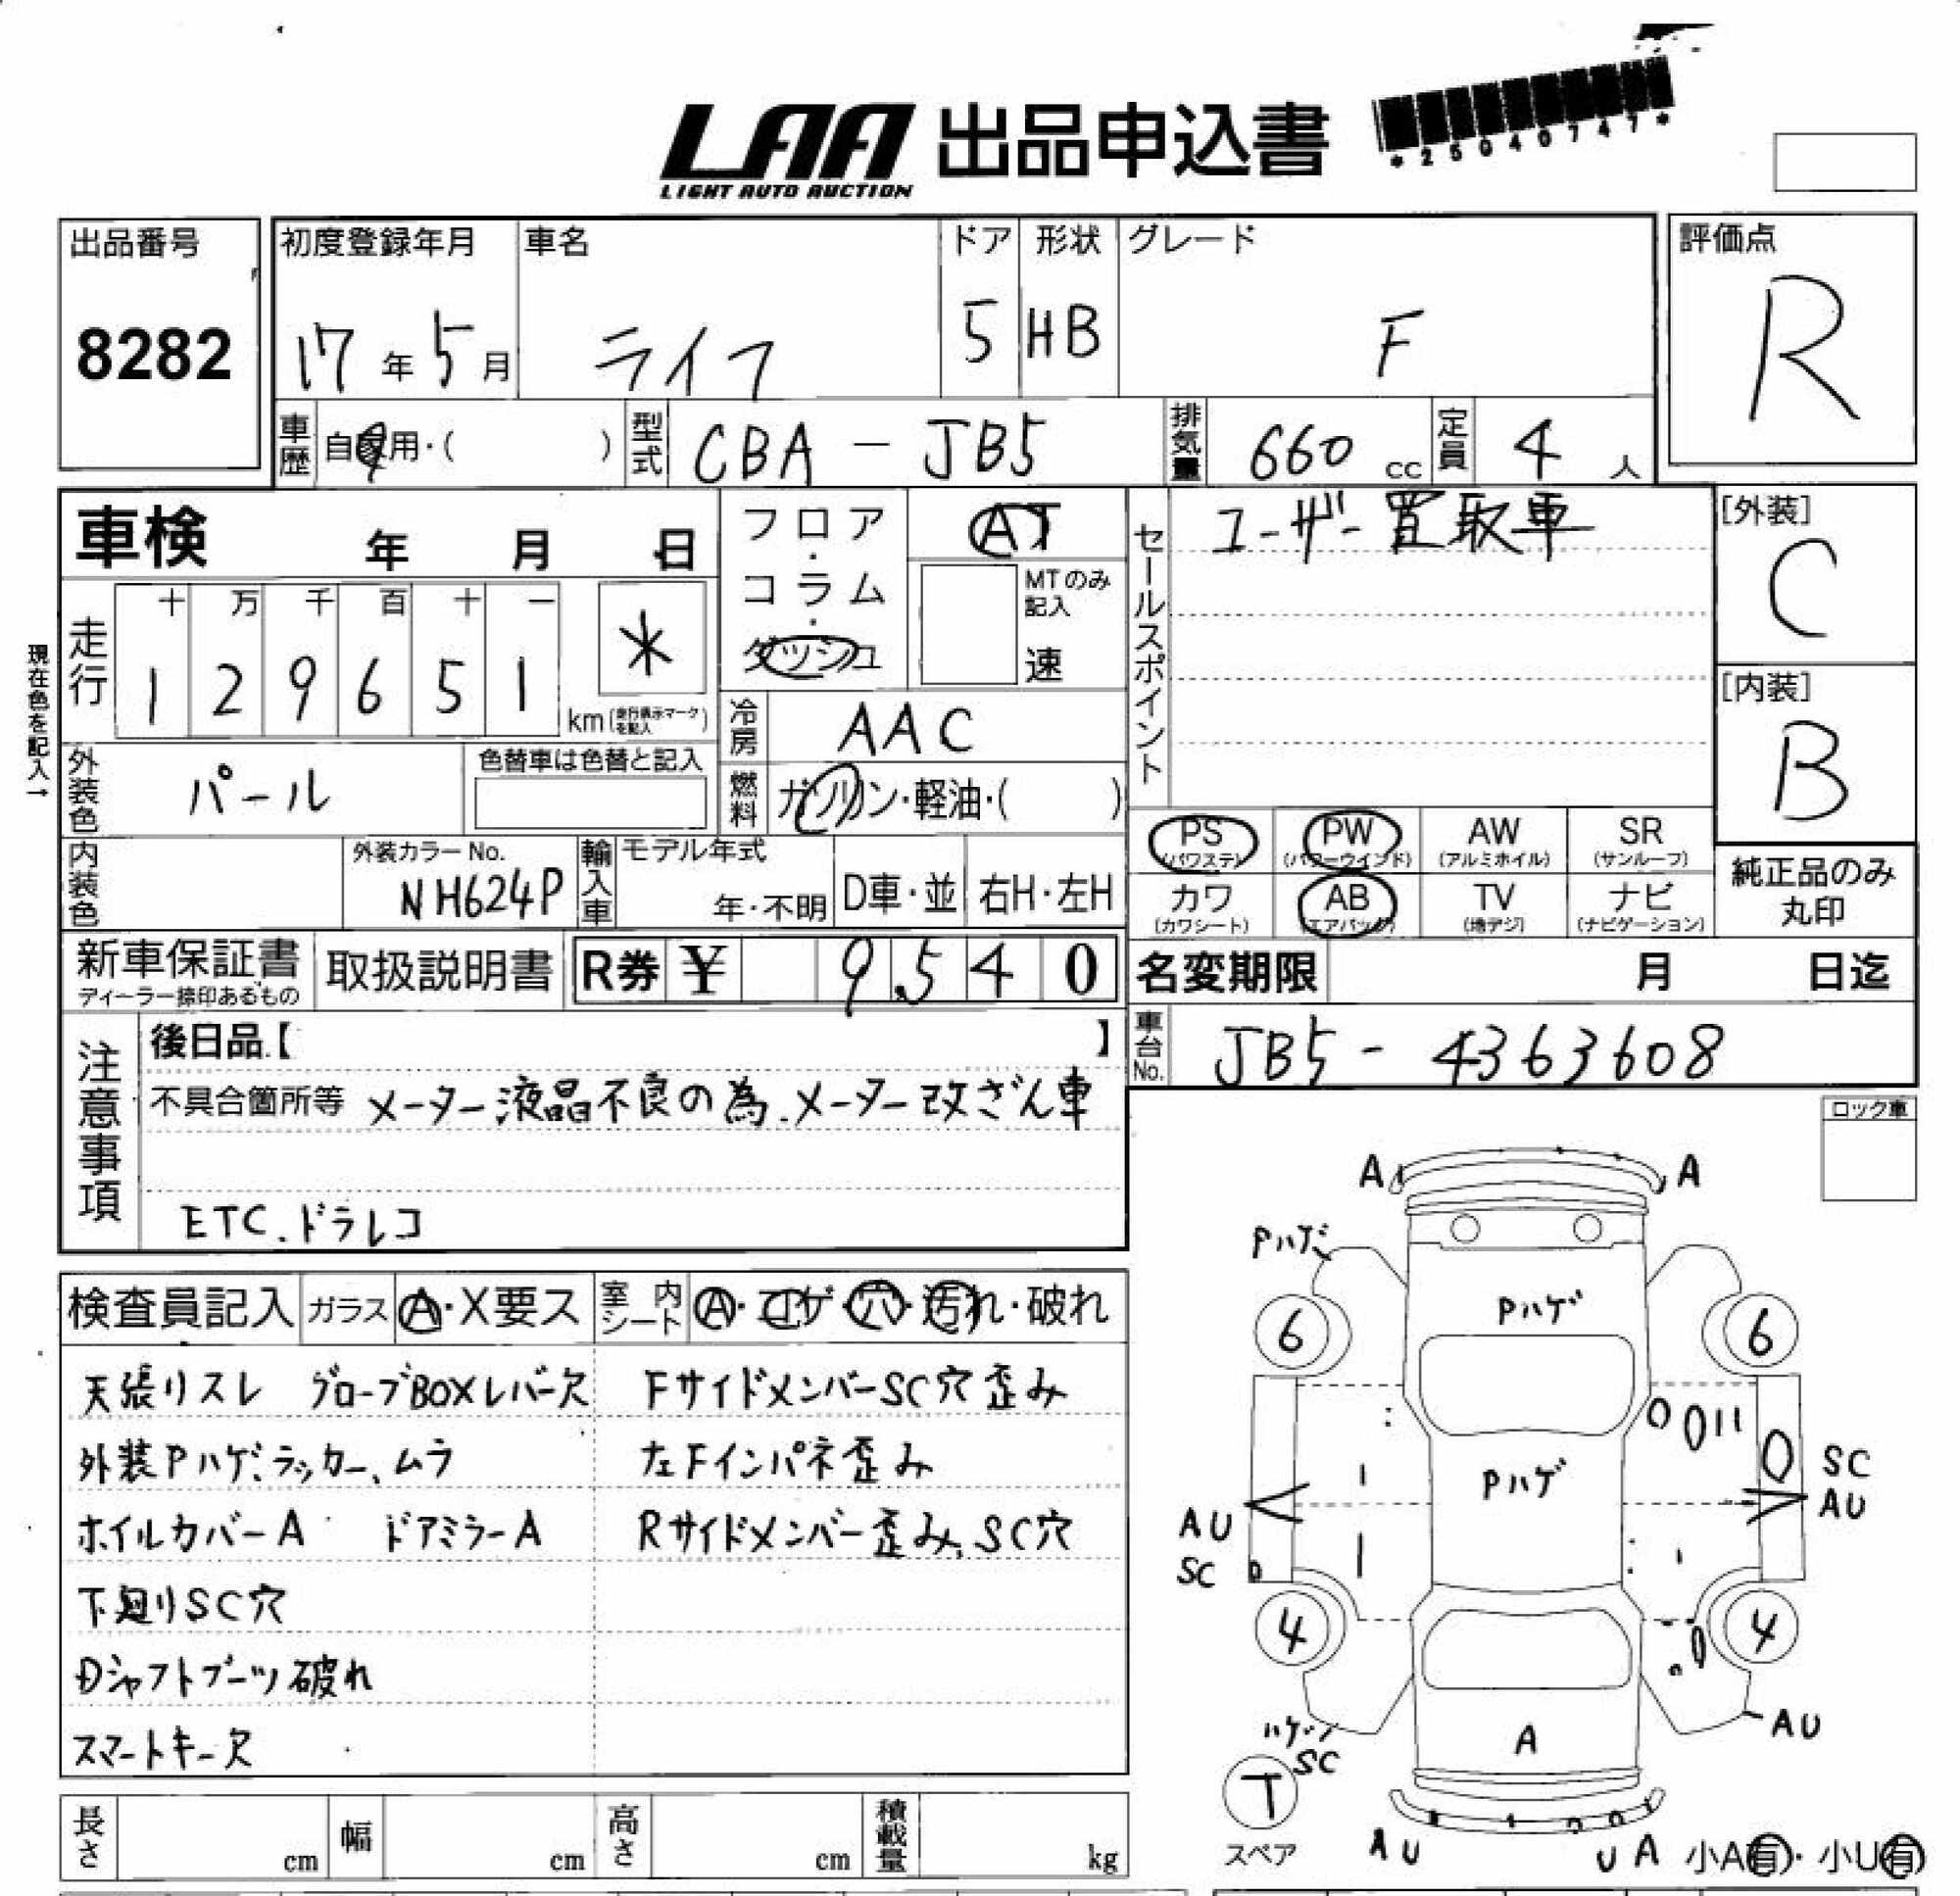 LAA 出品申込書
LIGHT AUTO AUCTION
*25040747*
出品番号
8282
初度登録年月
17年5月
車名
ライフ
ドア
5
形状
HB
グレード
F
評価点
R
車歴
自家用・( )
型式
CBA - JB5
排気量
660 cc
定員
4 人
車検 年 月 日
フロア・コラム・ダッシュ
AT
MTのみ記入
速
セールスポイント
ユーザー買取車
[外装]
C
[内装]
B
現在色を記入→
走行
十 万 千 百 十 一
1 2 9 6 5 1
*
km(走行表示マークを記入)
冷房
AAC
外装色
パール
色替車は色替と記入
燃料
ガソリン・軽油・( )
PS (パワステ)
PW (パワーウインド)
AW (アルミホイル)
SR (サンルーフ)
カワ (カワシート)
AB (エアバック)
TV (地デジ)
ナビ (ナビゲーション)
純正品のみ丸印
内装色
外装カラーNo.
NH624P
輸入車
モデル年式
年・不明
D車・並
右H・左H
新車保証書
ディーラー捺印あるもの
取扱説明書
R券 ¥ 9,540
名変期限 月 日迄
車台No.
JB5 - 4363608
注意事項
後日品【 】
不具合箇所等 メーター液晶不良の為.メーター改ざん車
ETC.ドラレコ
ロック車
検査員記入
ガラス
A・X要ス
室内シート
A・コゲ・穴・汚れ・破れ
天張リスレ グローブBOXレバー欠
Fサイドメンバー SC穴歪み
外装Pハゲ、ラッカー、ムラ
左Fインパネ歪み
ホイルカバーA ドアミラーA
Rサイドメンバー歪み、SC穴
下廻りSC穴
Dシャフトブーツ破れ
スマートキー欠
A A
Pハゲ
Pハゲ
6 6
Pハゲ
SC
AU
AU
SC
4 4
ハゲ
SC
A
AU
T
スペア
AU
UA
小A有・小U有
長さ cm
幅 cm
高さ cm
積載量 kg